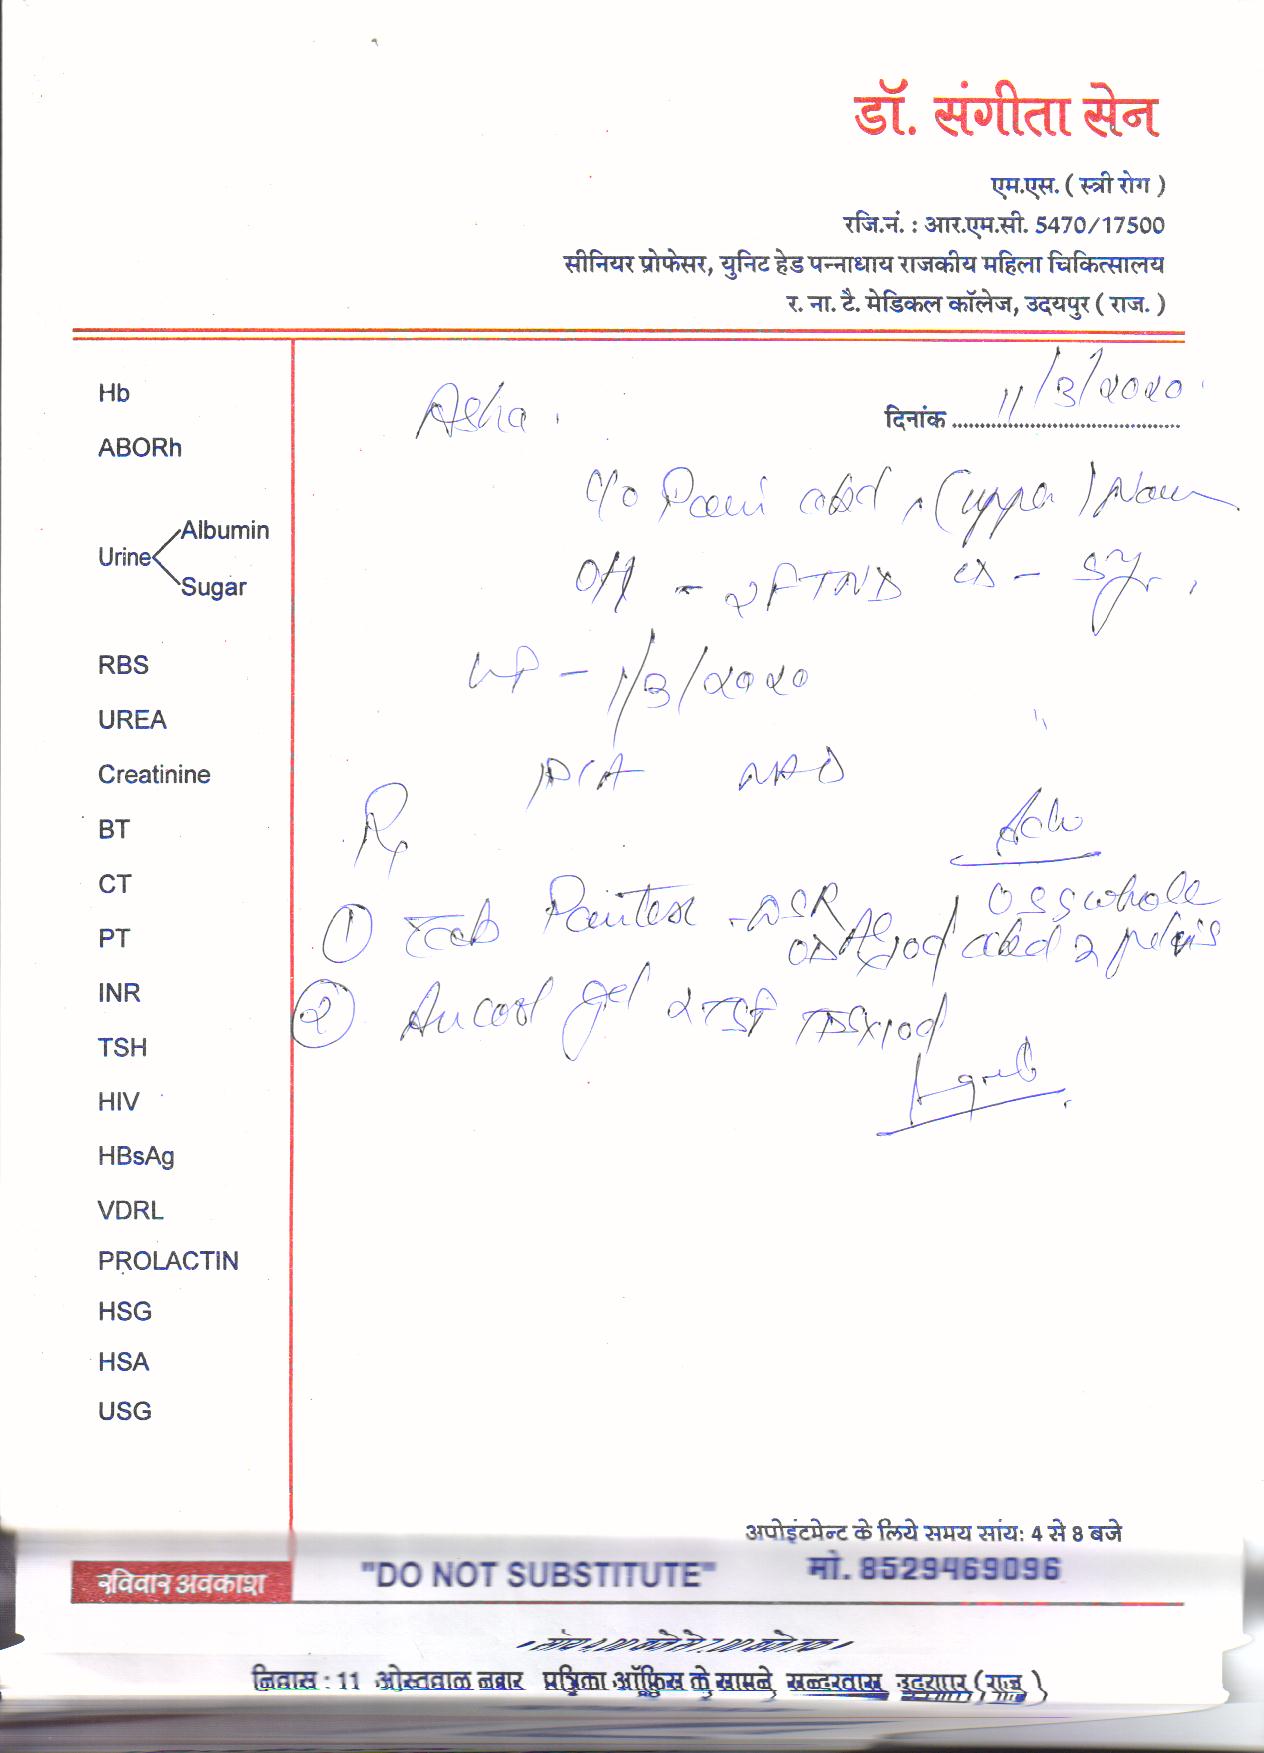 डॉ. संगीता सेन
एम.एस. ( स्त्री रोग )
रजि.नं. : आर.एम.सी. 5470/17500
सीनियर प्रोफेसर, युनिट हेड पन्नाधाय राजकीय महिला चिकित्सालय
र. ना. टै. मेडिकल कॉलेज, उदयपुर ( राज. )
दिनांक 11/3/2020
Asha
C/o Pain abd (upper)
O/H - 2FTND
LMP - 1/3/2020
P/A NAD
Rx
Adv
① Tab -DSR OD x 10d
USG whole abd & pelvis
② Aucool gel 2TSF TDS x 10d
Hb
ABORh
Urine
Albumin
Sugar
RBS
UREA
Creatinine
BT
CT
PT
INR
TSH
HIV
HBsAg
VDRL
PROLACTIN
HSG
HSA
USG
अपोइंटमेन्ट के लिये समय सांय: 4 से 8 बजे
रविवार अवकाश
"DO NOT SUBSTITUTE"
मो. 8529469096
निवास : 11 ओस्तवाल नगर पत्रिका ऑफिस के सामने, सुन्दरवास उदयपुर (राज.)